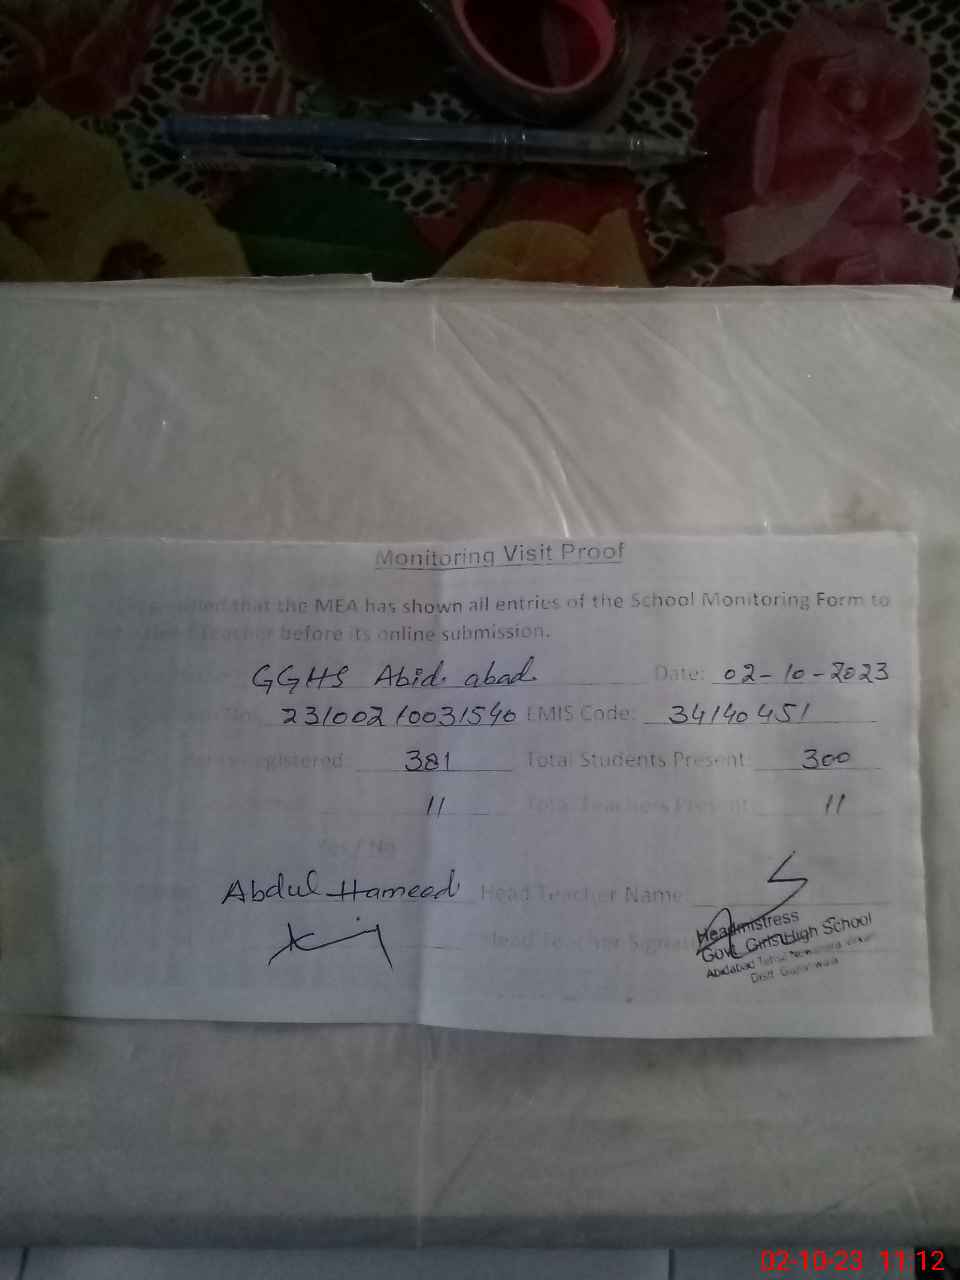 Monitoring Visit Proof
that the MEA has shown all entries of the School Monitoring Form to
Teacher before its online submission.
GGHS Abid abad Date: 02-10-2023
23100210031540 EMIS Code: 34140451
Registered: 381 Total Students Present: 300
11 Total Teachers Present: 11
Yes / No
Abdul Hameed Head Teacher Name:
Head Teacher Signature
Headmistress
Govt. Girls High School
Abidabad
Distt. Gujranwala
02-10-23 11:12